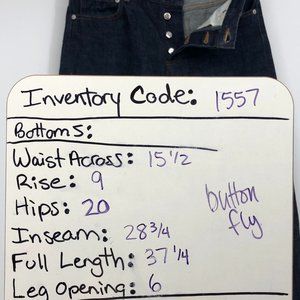 Inventory Code: 1557
Bottoms:
Waist Across: 15 1/2
Rise: 9
Hips: 20
Inseam: 28 3/4
Full Length: 37 1/4
Leg Opening: 6
button
fly